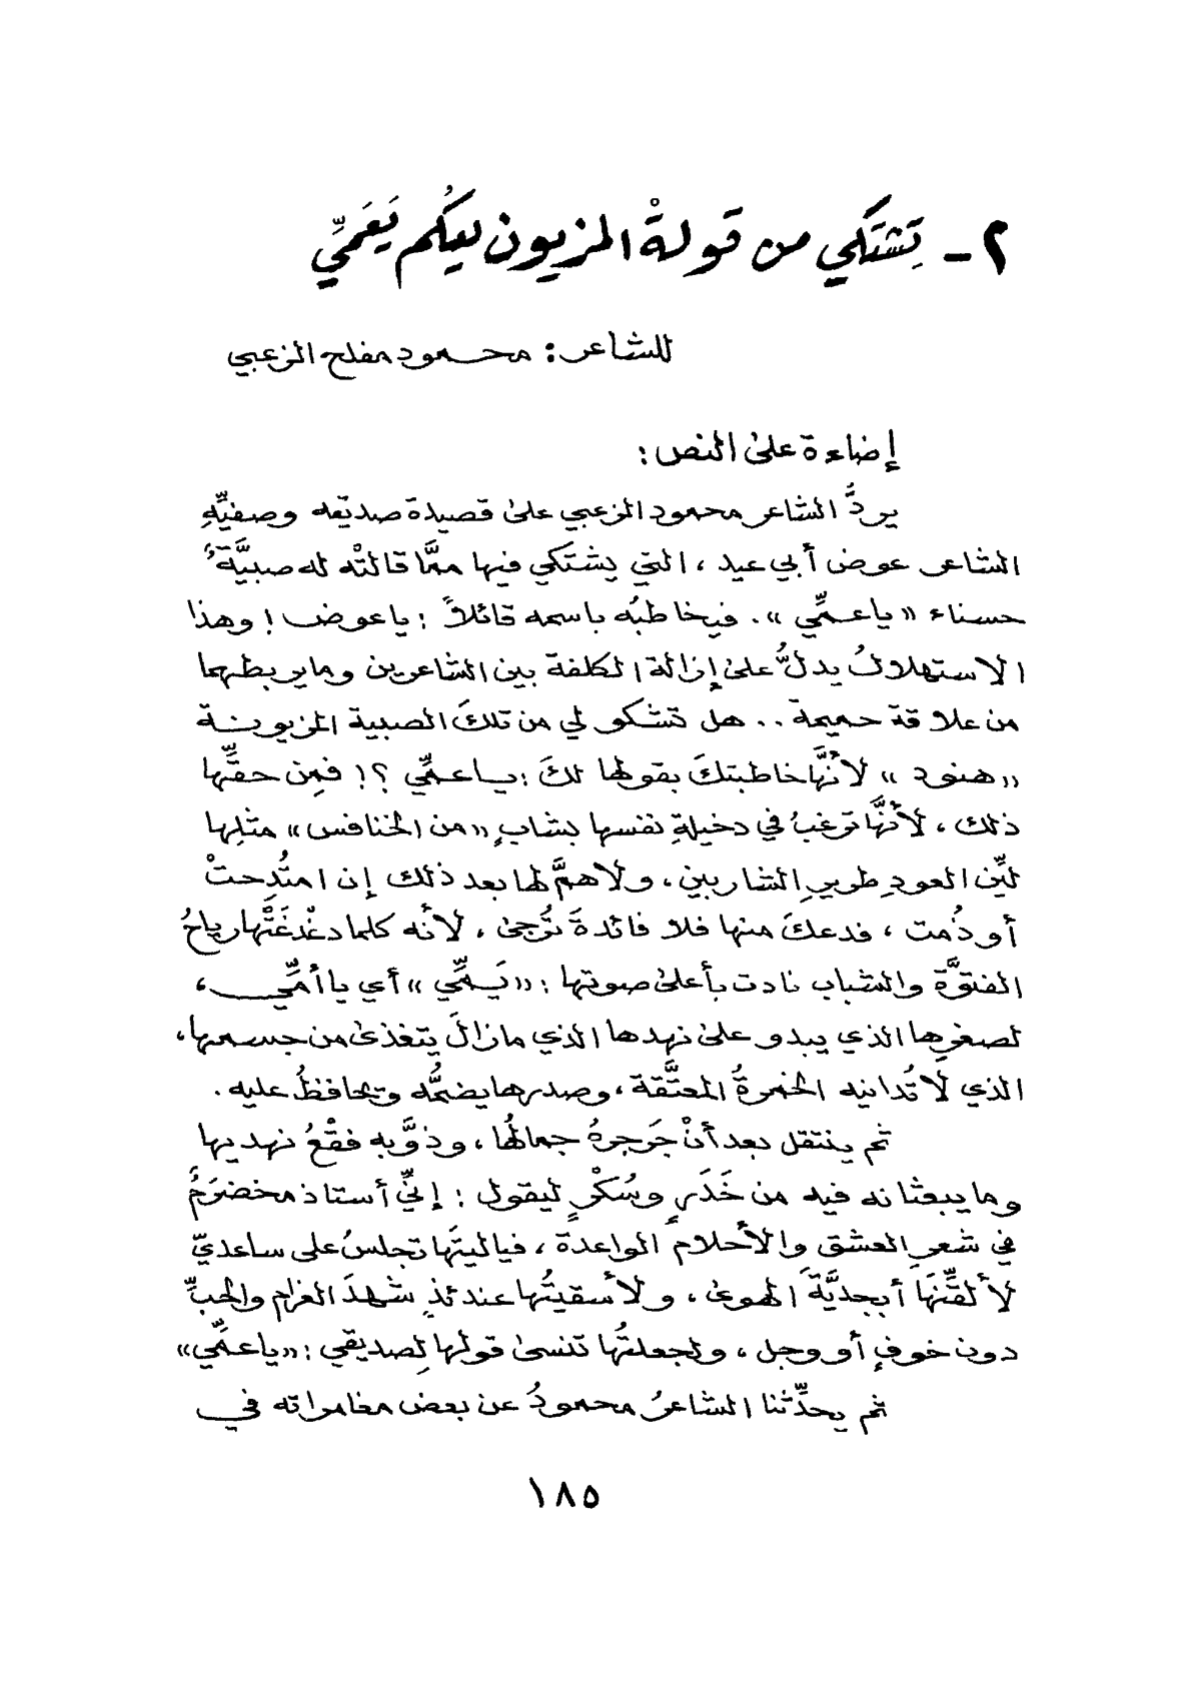 ٢- تِشتَكي من قولةْ المزيون ليكُم يَعَمِّي
للشاعر: محمود مفلح الزعبي
إضاءة على النص:
يردُّ الشاعر محمود الزعبي على قصيدة صديقه وصفيِّهِ
الشاعر عوض أبي عيد، التي يشتكي فيها ممَّا قالتْه له صبيَّةٌ
حسناء «ياعمِّي». فيخاطبُه باسمه قائلاً: ياعوض! وهذا
الاستهلالُ يدلُّ على إزالة الكلفة بين الشاعرين وما يربطهما
من علاقة حميمة.. هل تشكو لي من تلكَ الصبية المزيونة
«هنود» لأنَّها خاطبتكَ بقولها لكَ: ياعمِّي ؟! فمِن حقِّها
ذلك، لأنَّها ترغبُ في دخيلةِ نفسها بشابٍ «من الخنافس» مثلِها
ليِّن العودِ طريرِ الشاربين، ولاهمَّ لها بعد ذلك إن امتُدِحتْ
أو ذُمت، فدعكَ منها فلا فائدةَ تُرجى، لأنه كلما دغْدغَتْها رياحُ
الفتوَّة والشباب نادت بأعلى صوتها: «يَمِّي» أي ياأمِّي،
لصغرِها الذي يبدو على نهدها الذي مازالَ يتغذى من جسمها،
الذي لا تُدانيه الخمرةُ المعتَّقة، وصدرها يضمُّه وتحافظُ عليه.
ثم ينتقل بعد أنْ جَرجرهُ جمالُها، وذوَّبه فقْعُ نهديها
وما يبعثانه فيه من خَدَرٍ وسُكْرٍ ليقول: إنِّي أستاذ مخضرَمٌ
في شعرِ العشق والأحلام الواعدة، فياليتَها تجلسُ على ساعديّ
لألقِّنَها أبجديَّةَ الهوى، ولأسقيتُها عندئذٍ شهدَ الغرام والحبِّ
دون خوفٍ أو وجل، ولجعلتُها تنسى قولها لِصديقي: «ياعمِّي»
ثم يحدِّثنا الشاعرُ محمودُ عن بعض مغامراته في
١٨٥